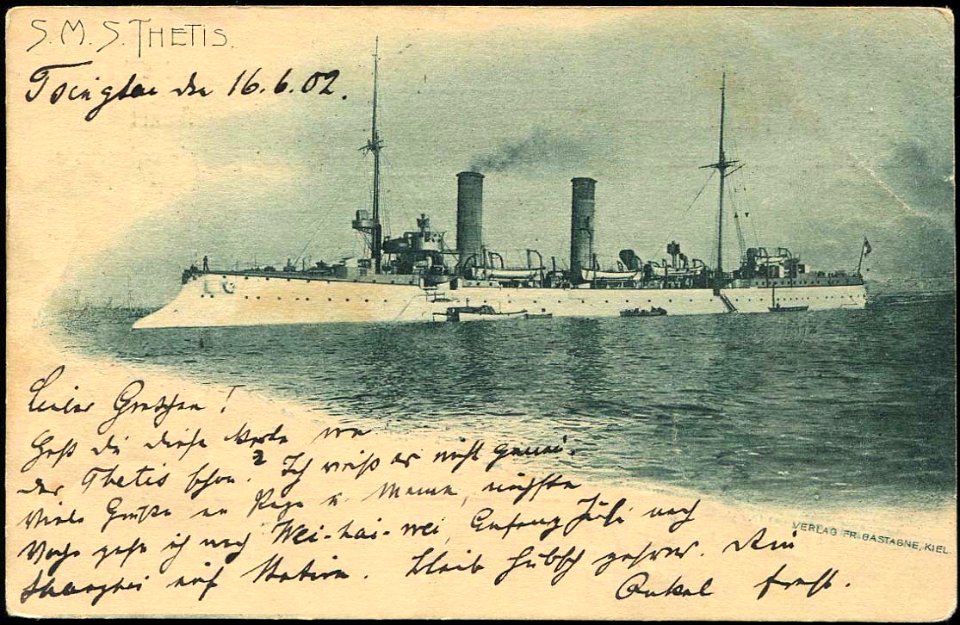 S.M.S. THETIS.
Tsingtau den 16.6.02.
Liebes Gretchen!
Hast du diese Karte von
der Thetis schon? Ich weiß es nicht genau.
Viele Grüße an Papa u. Mama, nächste
Woche gehe ich nach Wei-hai-wei, Anfang Juli nach
Shanghai auf Station. Bleib hübsch gesund. Dein
Onkel Ernst.
VERLAG FR. GASTAGNE, KIEL